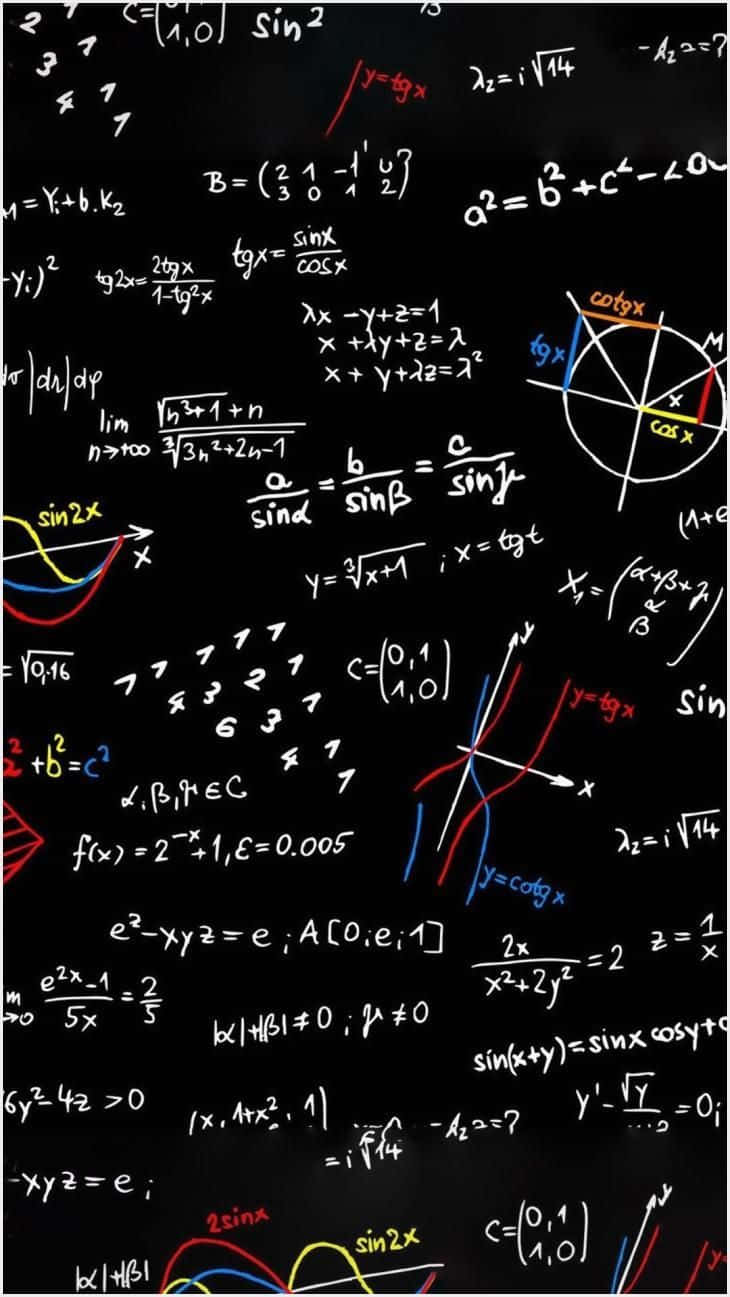 2 1
C=(1,0) sin2
3 1
4 1
1
y=tgx
λ₂=i√14
-A₂==?
B=(2 1 -1' 0
3 0 1 2)
a²=b²+c²-2
=Yᵢ+b.k₂
-Yᵢ)²
tg2x=2tgx/1-tg²x
tgx=sinx/cosx
λx -y+z=1
x +λy+z=λ
x + y+λz=λ²
cotgx
tgx
M
x
cosx
|dr|dφ
lim n→+∞ √n³+1+n/∛3n²+2n-1
a/sinα=b/sinβ=c/sinγ
sin2x
x
(1+e
y=∛x+1 ; x=tgt
X₁=(α+β+γ
α
β)
=√0,16
1 1 1 1 1
4 3 2 1
6 3 1
4 1
1
C=(0,1
1,0)
y
y=tgx
x
y=cotgx
sin
a²+b²=c²
α,β,γ∈C
f(x)=2⁻ˣ+1,ε=0.005
λ₂=i√14
e²-xyz=e;A[0;e;1]
2x/x²+2y²=2
z=1/x
m →0 e²ˣ-1/5x=2/5
|α|+|β|≠0;γ≠0
sin(x+y)=sinx cosy+c
6y²-4z>0
(x,1+x²,1)
-A₂==?
y'-√y =0;
=i√14
-xyz=e;
2sinx
sin2x
C=(0,1
1,0)
y
|α|+|β|
y=